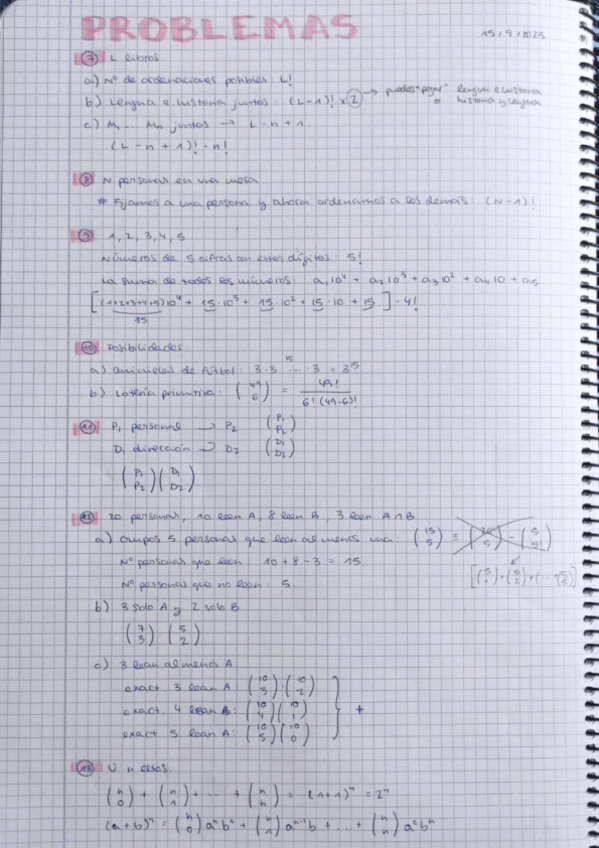 PROBLEMAS
15/9/2023
7 L libros.
a) Nº de ordenaciones posibles: L!
b) Lengua e historia juntos: (L-1)! x 2 → puedes "pegar" lengua e historia o historia y lengua
c) M₁ ... Mn juntos → L - n + 1.
(L - n + 1)! · n!
8 N personas en una mesa
# Fijamos a una persona y ahora ordenamos a los demás: (N-1)!
9 1, 2, 3, 4, 5
Números de 5 cifras con estos dígitos: 5!
La suma de todos los números: a₁10⁴ + a₂10³ + a₃10² + a₄10 + a₅
[(1+2+3+4+5)10⁴ + 15·10³ + 15·10² + 15·10 + 15]·4!
15
10 Posibilidades
a) quinielas de fútbol: 3·3 ... ·3 = 3¹⁵
15
b) Lotería primitiva: (49 6) = 49! / 6!(49-6)!
11 P₁ personas → P₂ (P₁ P₂)
D₁ dirección → D₂ (D₁ D₂)
(P₁ P₂)(D₁ D₂)
12 20 personas, 10 leen A, 8 leen B, 3 leen A∩B
a) Grupos 5 personas que lean al menos una: (15 5) = (20 5) - (5 5)
Nº personas que leen: 10 + 8 - 3 = 15
Nº personas que no leen: 5
b) 3 solo A y 2 solo B
(7 3)·(5 2)
c) 3 lean al menos A
exact. 3 lean A: (10 3)·(10 2)
exact. 4 lean A: (10 4)(10 1) +
exact 5 lean A: (10 5)(10 0)
13 U n cosas.
(n 0) + (n 1) + ... + (n n) = (1+1)ⁿ = 2ⁿ
(a+b)ⁿ = (n 0) aⁿb⁰ + (n 1) aⁿ⁻¹b + ... + (n n) a⁰bⁿ